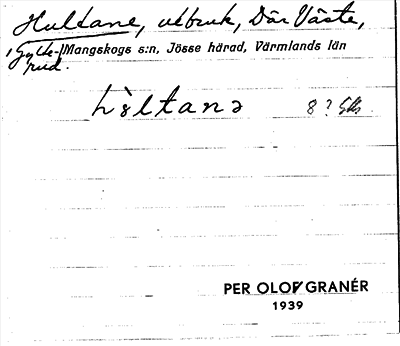 Hultane, utbruk, Där Väste,
i Gylte- Mangskogs s:n, Jösse härad, Värmlands län
rud.
hùltanə 8?
PER OLOF GRANÉR
1939